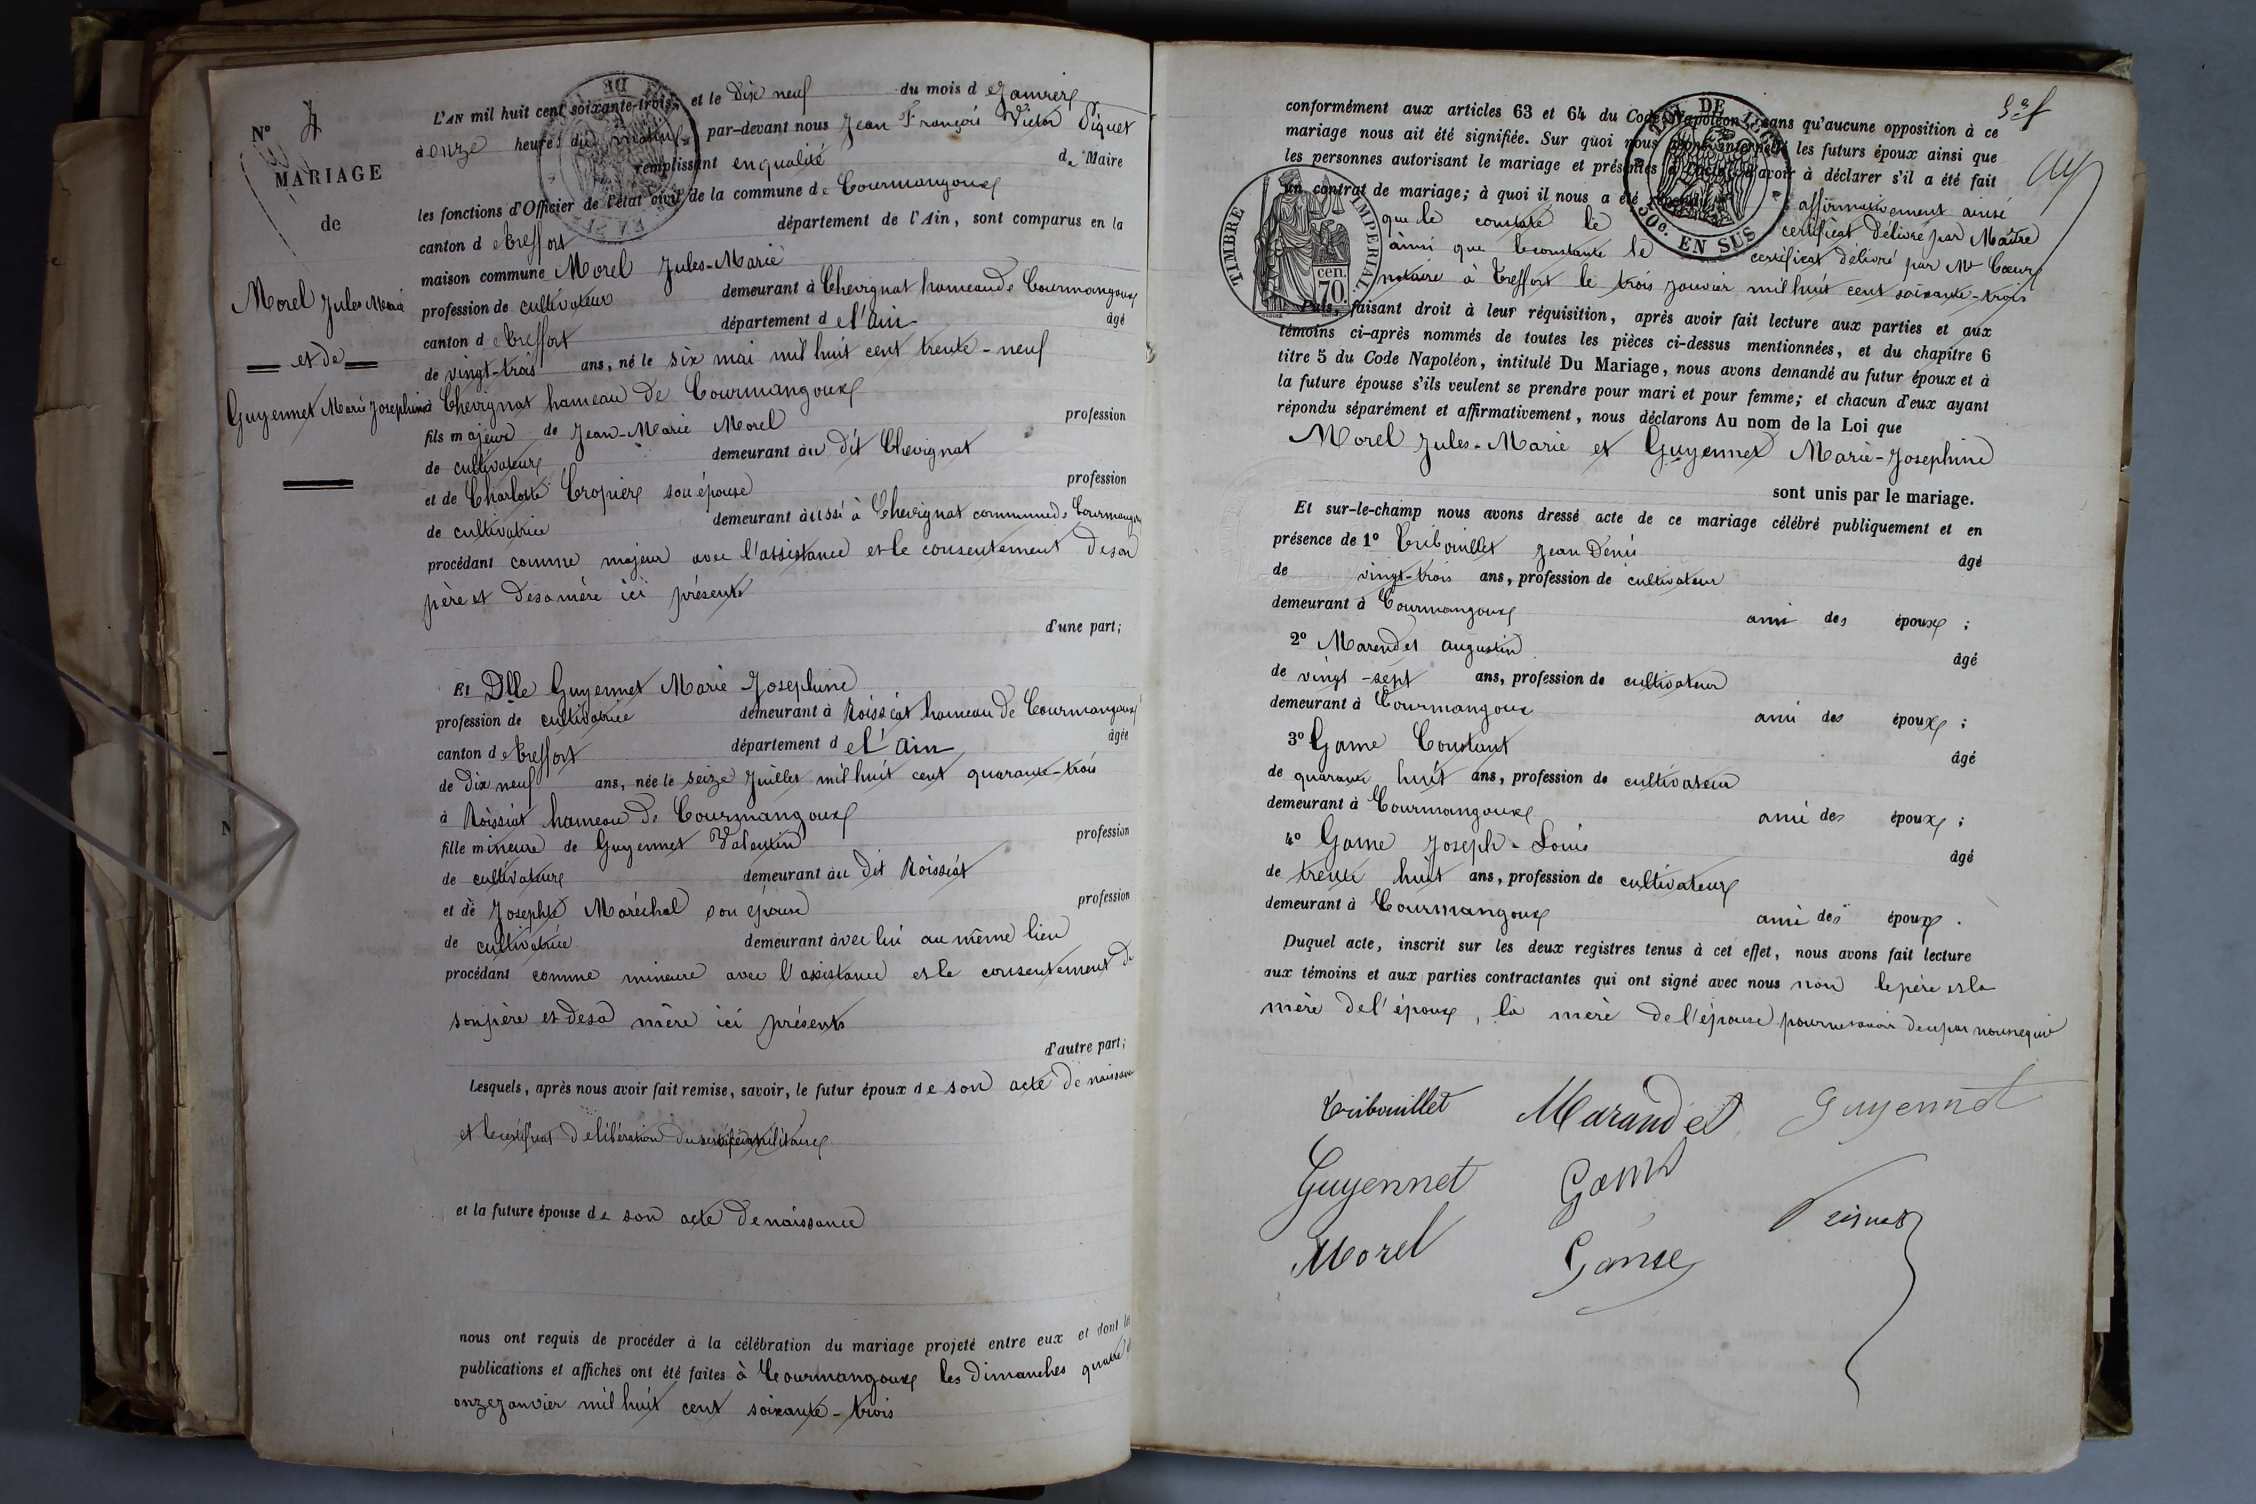 N° 4
MARIAGE
de
Morel Jules Marie
et de
Guyennet Marie Josephine
L'AN mil huit cent soixante-trois et le dix neuf du mois de Janvier
à onze heures du matin par-devant nous Jean François Victor Piquet
remplissant en qualité de Maire
les fonctions d'Officier de l'état civil de la commune de Courmangoux
canton de Treffort département de l'Ain, sont comparus en la
maison commune Morel Jules-Marie
profession de cultivateur demeurant à Chevignat hameau de Courmangoux
canton de Treffort département de l'ain âgé
de vingt-trois ans, né le six mai mil huit cent trente-neuf
à Chevignat hameau de Courmangoux
fils majeur de Jean-Marie Morel profession
de cultivateur demeurant au dit Chevignat
et de Charlotte Tropier son épouse profession
de cultivatrice demeurant aussi à Chevignat commune de Courmangoux
procédant comme majeur avec l'assistance et le consentement de son
père et de sa mère ici présents
d'une part;
Et Dlle Guyennet Marie Josephine
profession de cultivatrice demeurant à Roissiat hameau de Courmangoux
canton de Treffort département de l'ain âgée
de dix neuf ans, née le seize Juillet mil huit cent quarante-trois
à Roissiat hameau de Courmangoux
fille mineure de Guyennet Valentin profession
de cultivateur demeurant au dit Roissiat
et de Josephte Maréchal son épouse profession
de cultivatrice demeurant avec lui au même lieu
procédant comme mineure avec l'assistance et le consentement de
son père et de sa mère ici présents
d'autre part;
Lesquels, après nous avoir fait remise, savoir, le futur époux de son acte de naissance
et le certificat de libération du service militaire
et la future épouse de son acte de naissance
nous ont requis de procéder à la célébration du mariage projeté entre eux et dont les
publications et affiches ont été faites à Courmangoux les dimanches quatre et
onze janvier mil huit cent soixante-trois
conformément aux articles 63 et 64 du Code Napoléon, sans qu'aucune opposition à ce
mariage nous ait été signifiée. Sur quoi nous avons interpellé les futurs époux ainsi que
les personnes autorisant le mariage et présentes à l'acte, d'avoir à déclarer s'il a été fait
un contrat de mariage; à quoi il nous a été répondu affirmativement ainsi
que le constate le certificat délivré par Maître
ainsi que le constate le certificat délivré par Me Coeur
notaire à Treffort le trois janvier mil huit cent soixante-trois
TIMBRE IMPERIAL
70 cen.
50c. EN SUS
Puis, faisant droit à leur réquisition, après avoir fait lecture aux parties et aux
témoins ci-après nommés de toutes les pièces ci-dessus mentionnées, et du chapitre 6
titre 5 du Code Napoléon, intitulé Du Mariage, nous avons demandé au futur époux et à
la future épouse s'ils veulent se prendre pour mari et pour femme; et chacun d'eux ayant
répondu séparément et affirmativement, nous déclarons Au nom de la Loi que
Morel Jules-Marie et Guyennet Marie-Josephine
sont unis par le mariage.
Et sur-le-champ nous avons dressé acte de ce mariage célébré publiquement et en
présence de 1° Tribouillet Jean Denis âgé
de vingt-trois ans, profession de cultivateur
demeurant à Courmangoux ami des époux;
2° Marendet augustin âgé
de vingt-sept ans, profession de cultivateur
demeurant à Courmangoux ami des époux;
3° Game Constant âgé
de quarante huit ans, profession de cultivateur
demeurant à Courmangoux ami des époux;
4° Game Joseph-Louis âgé
de trente huit ans, profession de cultivateur
demeurant à Courmangoux ami des époux.
Duquel acte, inscrit sur les deux registres tenus à cet effet, nous avons fait lecture
aux témoins et aux parties contractantes qui ont signé avec nous non le père et la
mère de l'époux, la mère de l'épouse pour ne savoir de ce par nous requis
Tribouillet Marandet Guyennet
Guyennet Game
Morel Game